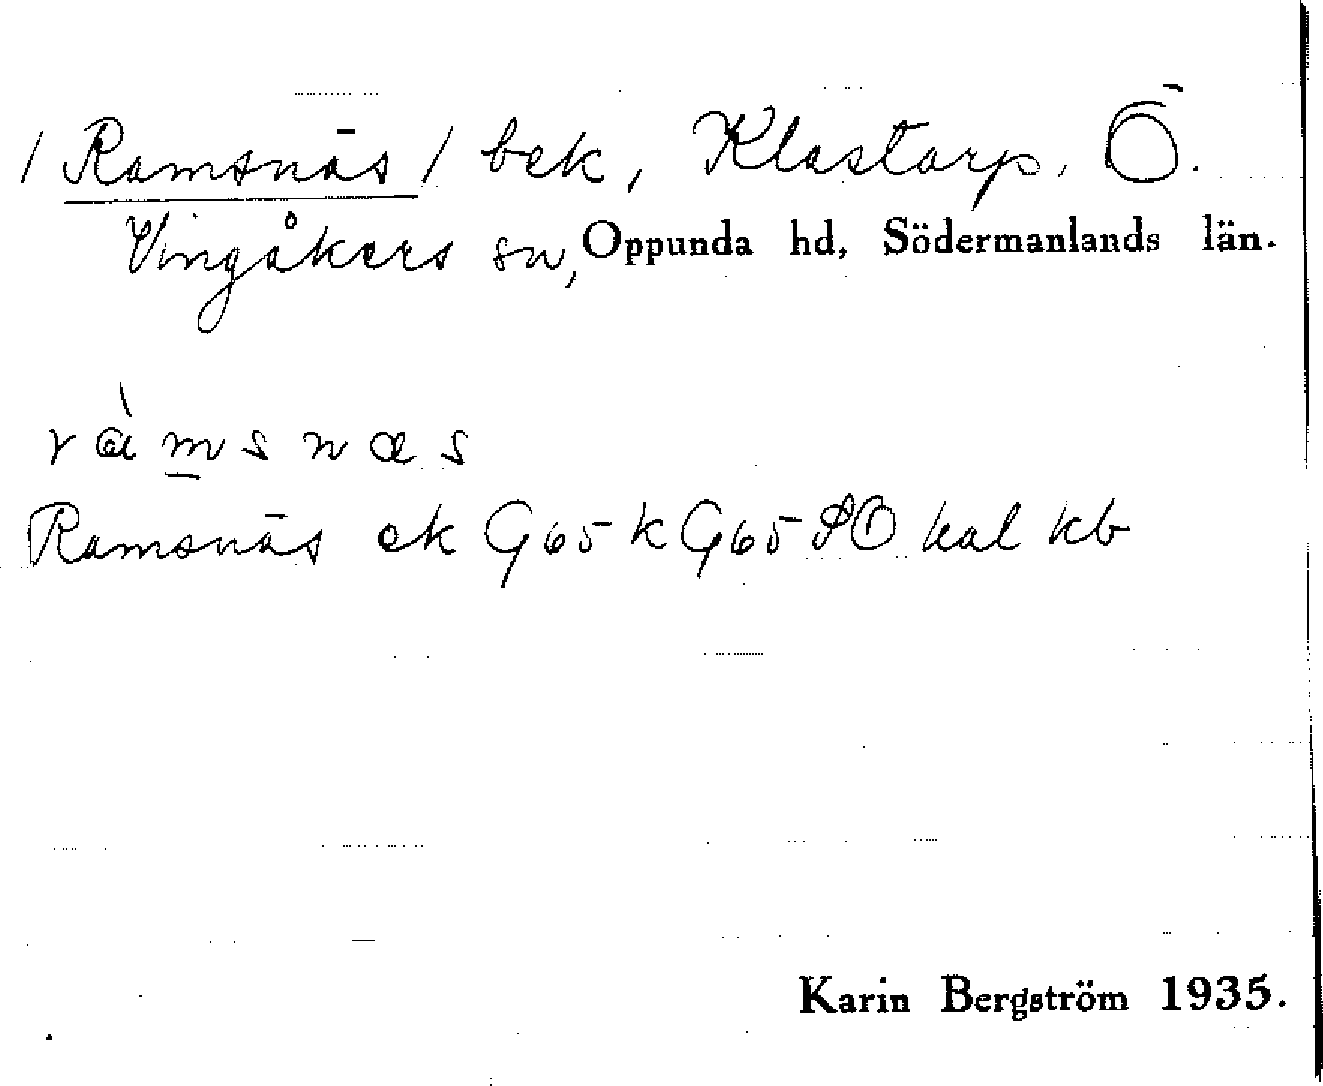 / Ramsnäs / bek, Klastorp, Ö.
Vingåkers sn, Oppunda hd, Södermanlands län.
ràmsnæs
Ramsnäs ek G65 k G65 SO hal kb
Karin Bergström 1935.